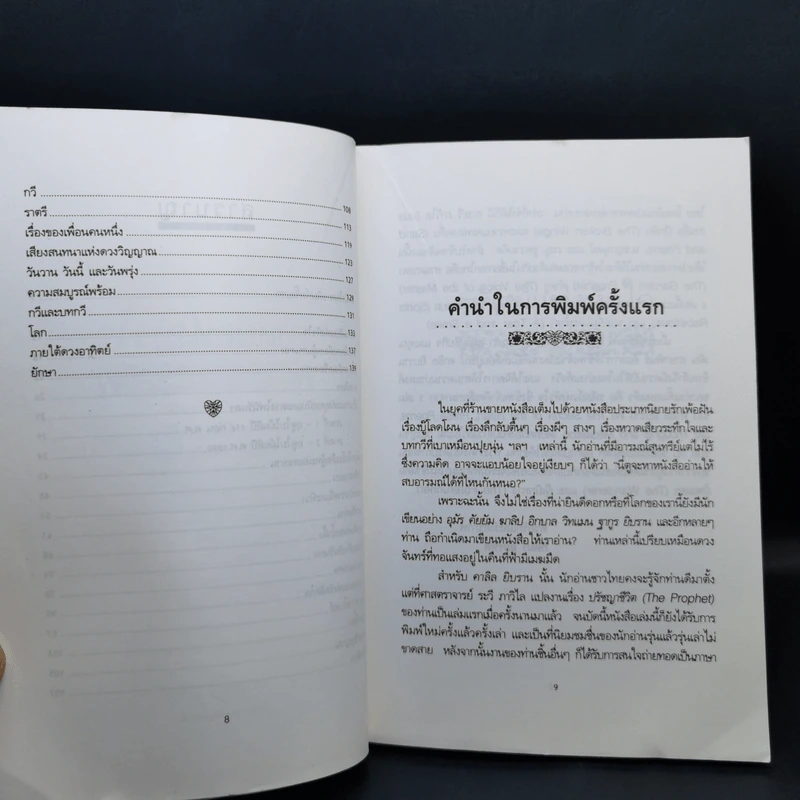 กวี 108
ราตรี 113
เรื่องของเพื่อนคนหนึ่ง 119
เสียงสนทนาแห่งดวงวิญญาณ 123
วันวาน วันนี้ และวันพรุ่ง 127
ความสมบูรณ์พร้อม 129
กวีและบทกวี 131
โลก 133
ภายใต้ดวงอาทิตย์ 137
ยักษา 139
8
คำนำในการพิมพ์ครั้งแรก
ในยุคที่ร้านขายหนังสือเต็มไปด้วยหนังสือประเภทนิยายรักเพ้อฝัน
เรื่องบู๊โลดโผน เรื่องลึกลับตื้นๆ เรื่องผีๆ สางๆ เรื่องหวาดเสียวระทึกใจและ
บทกวีที่เบาเหมือนปุยนุ่น ฯลฯ เหล่านี้ นักอ่านที่มีอารมณ์สุนทรีย์แต่ไม่ไร้
ซึ่งความคิด อาจจะแอบน้อยใจอยู่เงียบๆ ก็ได้ว่า "นี่ตูจะหาหนังสืออ่านให้
สบอารมณ์ได้ที่ไหนกันหนอ?"
เพราะฉะนั้น จึงไม่ใช่เรื่องที่น่ายินดีดอกหรือที่โลกของเรานี้ยังมีนัก
เขียนอย่าง อุมัร คัยยัม ฆาลิป อิกบาล วิทแมน ฐากูร ยิบราน และอีกหลายๆ
ท่าน ถือกำเนิดมาเขียนหนังสือให้เราอ่าน? ท่านเหล่านี้เปรียบเหมือนดวง
จันทร์ที่ทอแสงอยู่ในคืนที่ฟ้ามีเมฆมืด
สำหรับ คาลิล ยิบราน นั้น นักอ่านชาวไทยคงจะรู้จักท่านดีมาตั้ง
แต่ที่ศาสตราจารย์ ระวี ภาวิไล แปลงานเรื่อง ปรัชญาชีวิต (The Prophet)
ของท่านเป็นเล่มแรกเมื่อครั้งนานมาแล้ว จนบัดนี้หนังสือเล่มนี้ก็ยังได้รับการ
พิมพ์ใหม่ครั้งแล้วครั้งเล่า และเป็นที่นิยมชมชื่นของนักอ่านรุ่นแล้วรุ่นเล่าไม่
ขาดสาย หลังจากนั้นงานของท่านชิ้นอื่นๆ ก็ได้รับการสนใจถ่ายทอดเป็นภาษา
9